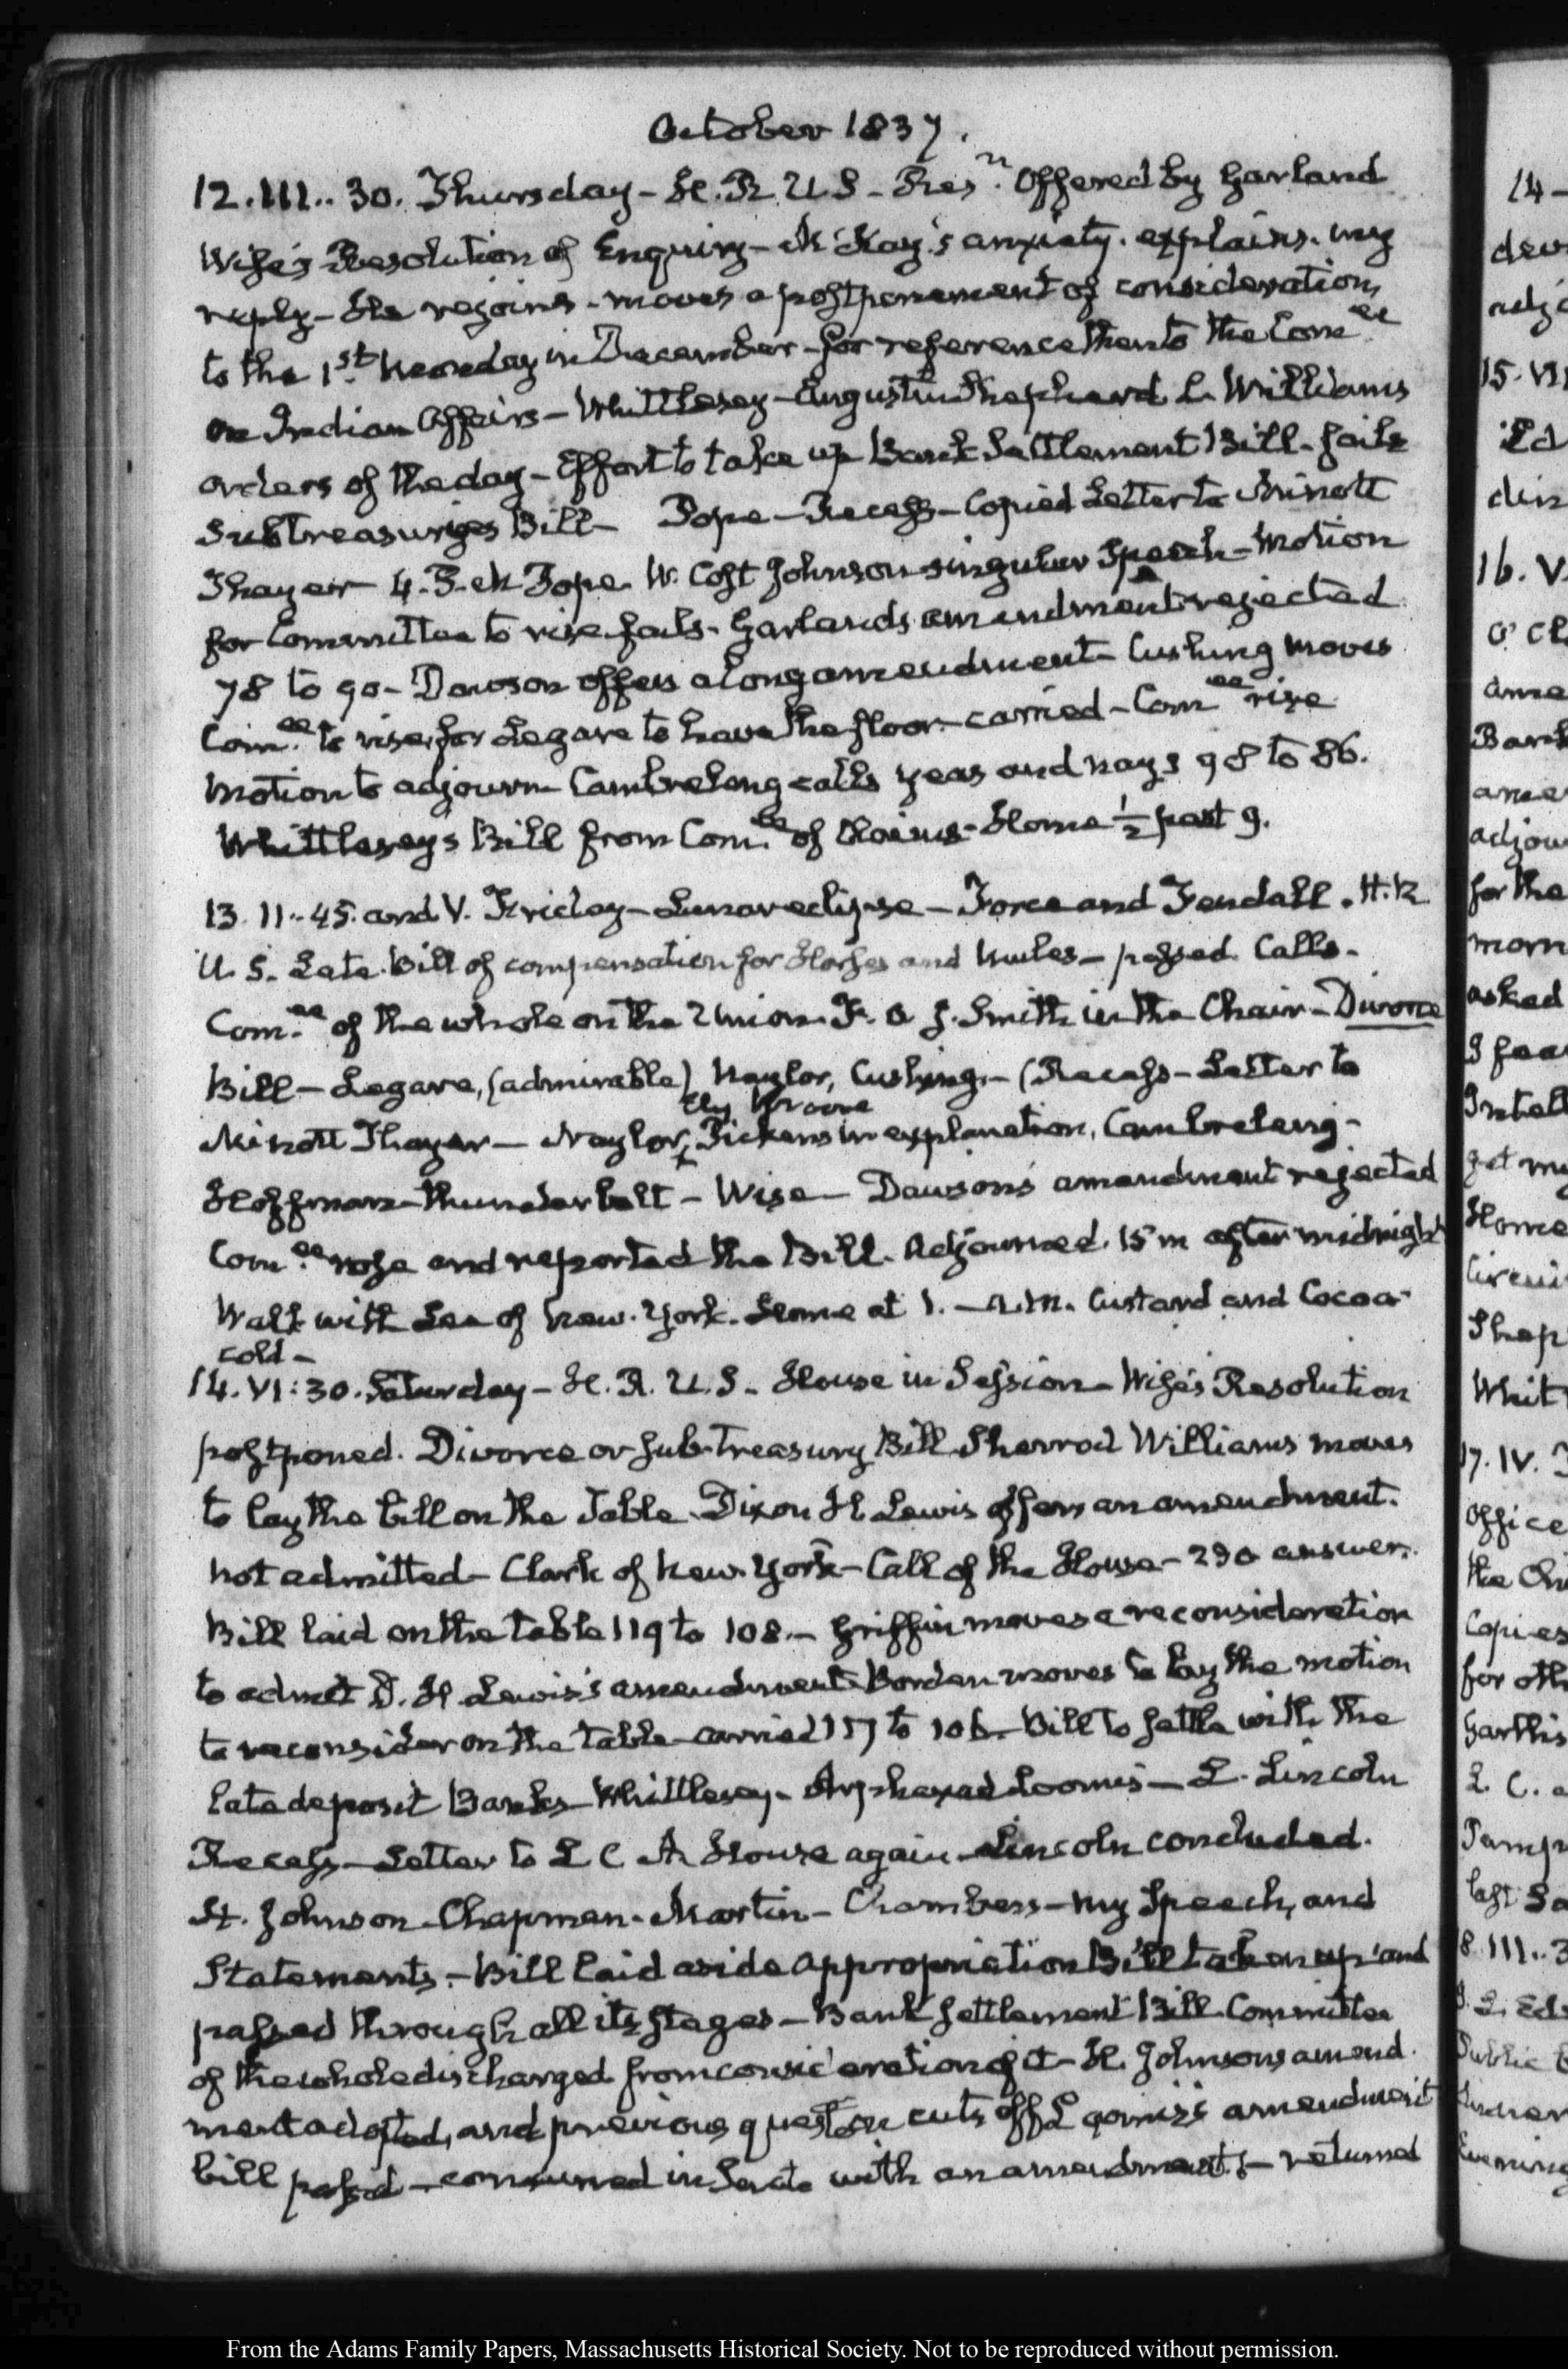 October 1837.
12. III.. 30. Thursday – H. R. U S – Resn. Offered by Garland
Wise's Resolution of Enquiry – McKay's anxiety. explains. my
reply – He rejoins – moves a postponement of consideration,
to the 1st. Monday in December – for reference then to the Comee
on Indian Affairs – Whittlesey – Augustin Shepherd L. Williams
orders of the day – Effort to take up Bank Settlement Bill – fails
Subtreasuries Bill – Pope – Recess – Copied Letter to Minott
Thayer – 4. P.M Pope. W. Cost Johnson singular Speech – Motion
for Committee to rise fails – Garlands amendment rejected
78 to 90 – Dawson offers a long amendment – Cushing moves
Comee. to rise, for Legare to have the floor – carried – Comee rise
Motion to adjourn – Cambreleng calls yeas and nays 98 to 86.
Whittleseys Bill from Comee. of Claims – Home ½ past 9.
13. II.. 45. and V. Friday – Lunar eclipse – Force and Fendall. H. R
U. S. Late. Bill of compensation for Horses and Mules – passed. Calls –
Comee. of the whole on the Union. F. O J. Smith in the Chair – Divorce
Bill – Legare, (admirable) Naylor, Cushing, – (Recess – Letter to
Ely Moore
Minott Thayer – Naylor, Pickens in explanation, Cambreleng –
Hoffman – thunderbolt – Wise – Dawson's amendment rejected
Comee. rose and reported the Bill. Adjourned. 15 m after midnight
Walk with Lee of New. York. Home at 1. – A.M. Custard and Cocoa
cold –
14. VI: 30. Saturday – H. R. U. S – House in Session – Wise's Resolution
postponed. Divorce or Sub-Treasury Bill – Sherrod Williams moves
to lay the bill on the Table. Dixon H. Lewis offers an amendment.
not admitted – Clark of New. York – Call of the House – 230 answer.
Bill laid on the table 119 to 108. – Griffin moves a reconsideration
to admit D. H Lewis's amendment – Borden moves to lay the motion
to reconsider on the table – carried to 106 – Bill to settle with the
late deposit Banks – Whittlesey – Arphaxad Loomis – L. Lincoln
Recess – Letter to L C A. House again – Lincoln concluded.
H. Johnson – Chapman – Martin – Chambers – my Speech, and
Statements. – Bill laid aside appropriation Bill taken up and
passed through all its stages – Bank settlement Bill Committee
of the whole discharged from consideration of it – H. Johnsons amend.
ment adopted, and previous question cuts off Loomis's amendment
bill passed – concurred in Senate with an amendment – returned
14 –
15. VI
16. V.
Bank
for the
morn
asked
get my
Home
17. IV.
office
Copies
for oth
L. C. a
8. III.. 3
From the Adams Family Papers, Massachusetts Historical Society. Not to be reproduced without permission.